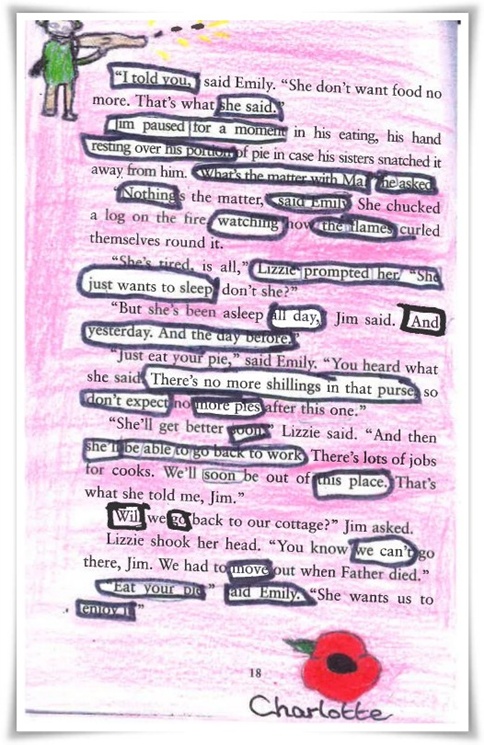 “I told you, said Emily. “She don’t want food no
more. That’s what she said.”
Jim paused for a moment in his eating, his hand
resting over his portion of pie in case his sisters snatched it
away from him. What’s the matter with Ma he asked
“Nothing’s the matter, said Emily She chucked
a log on the fire, watching how the flames curled
themselves round it.
“She’s tired, is all,” Lizzie prompted her “She
just wants to sleep, don’t she?”
“But she’s been asleep all day, Jim said. And
yesterday. And the day before.”
“Just eat your pie,” said Emily. “You heard what
she said There’s no more shillings in that purse so
don’t expect no more pies after this one.”
“She’ll get better soon Lizzie said. “And then
she’ll be able to go back to work There’s lots of jobs
for cooks. We’ll soon be out of this place. That’s
what she told me, Jim.”
Will we go back to our cottage?” Jim asked.
Lizzie shook her head. “You know we can’t go
there, Jim. We had to move out when Father died.”
“Eat your pie” said Emily. “She wants us to
enjoy it”
18
Charlotte